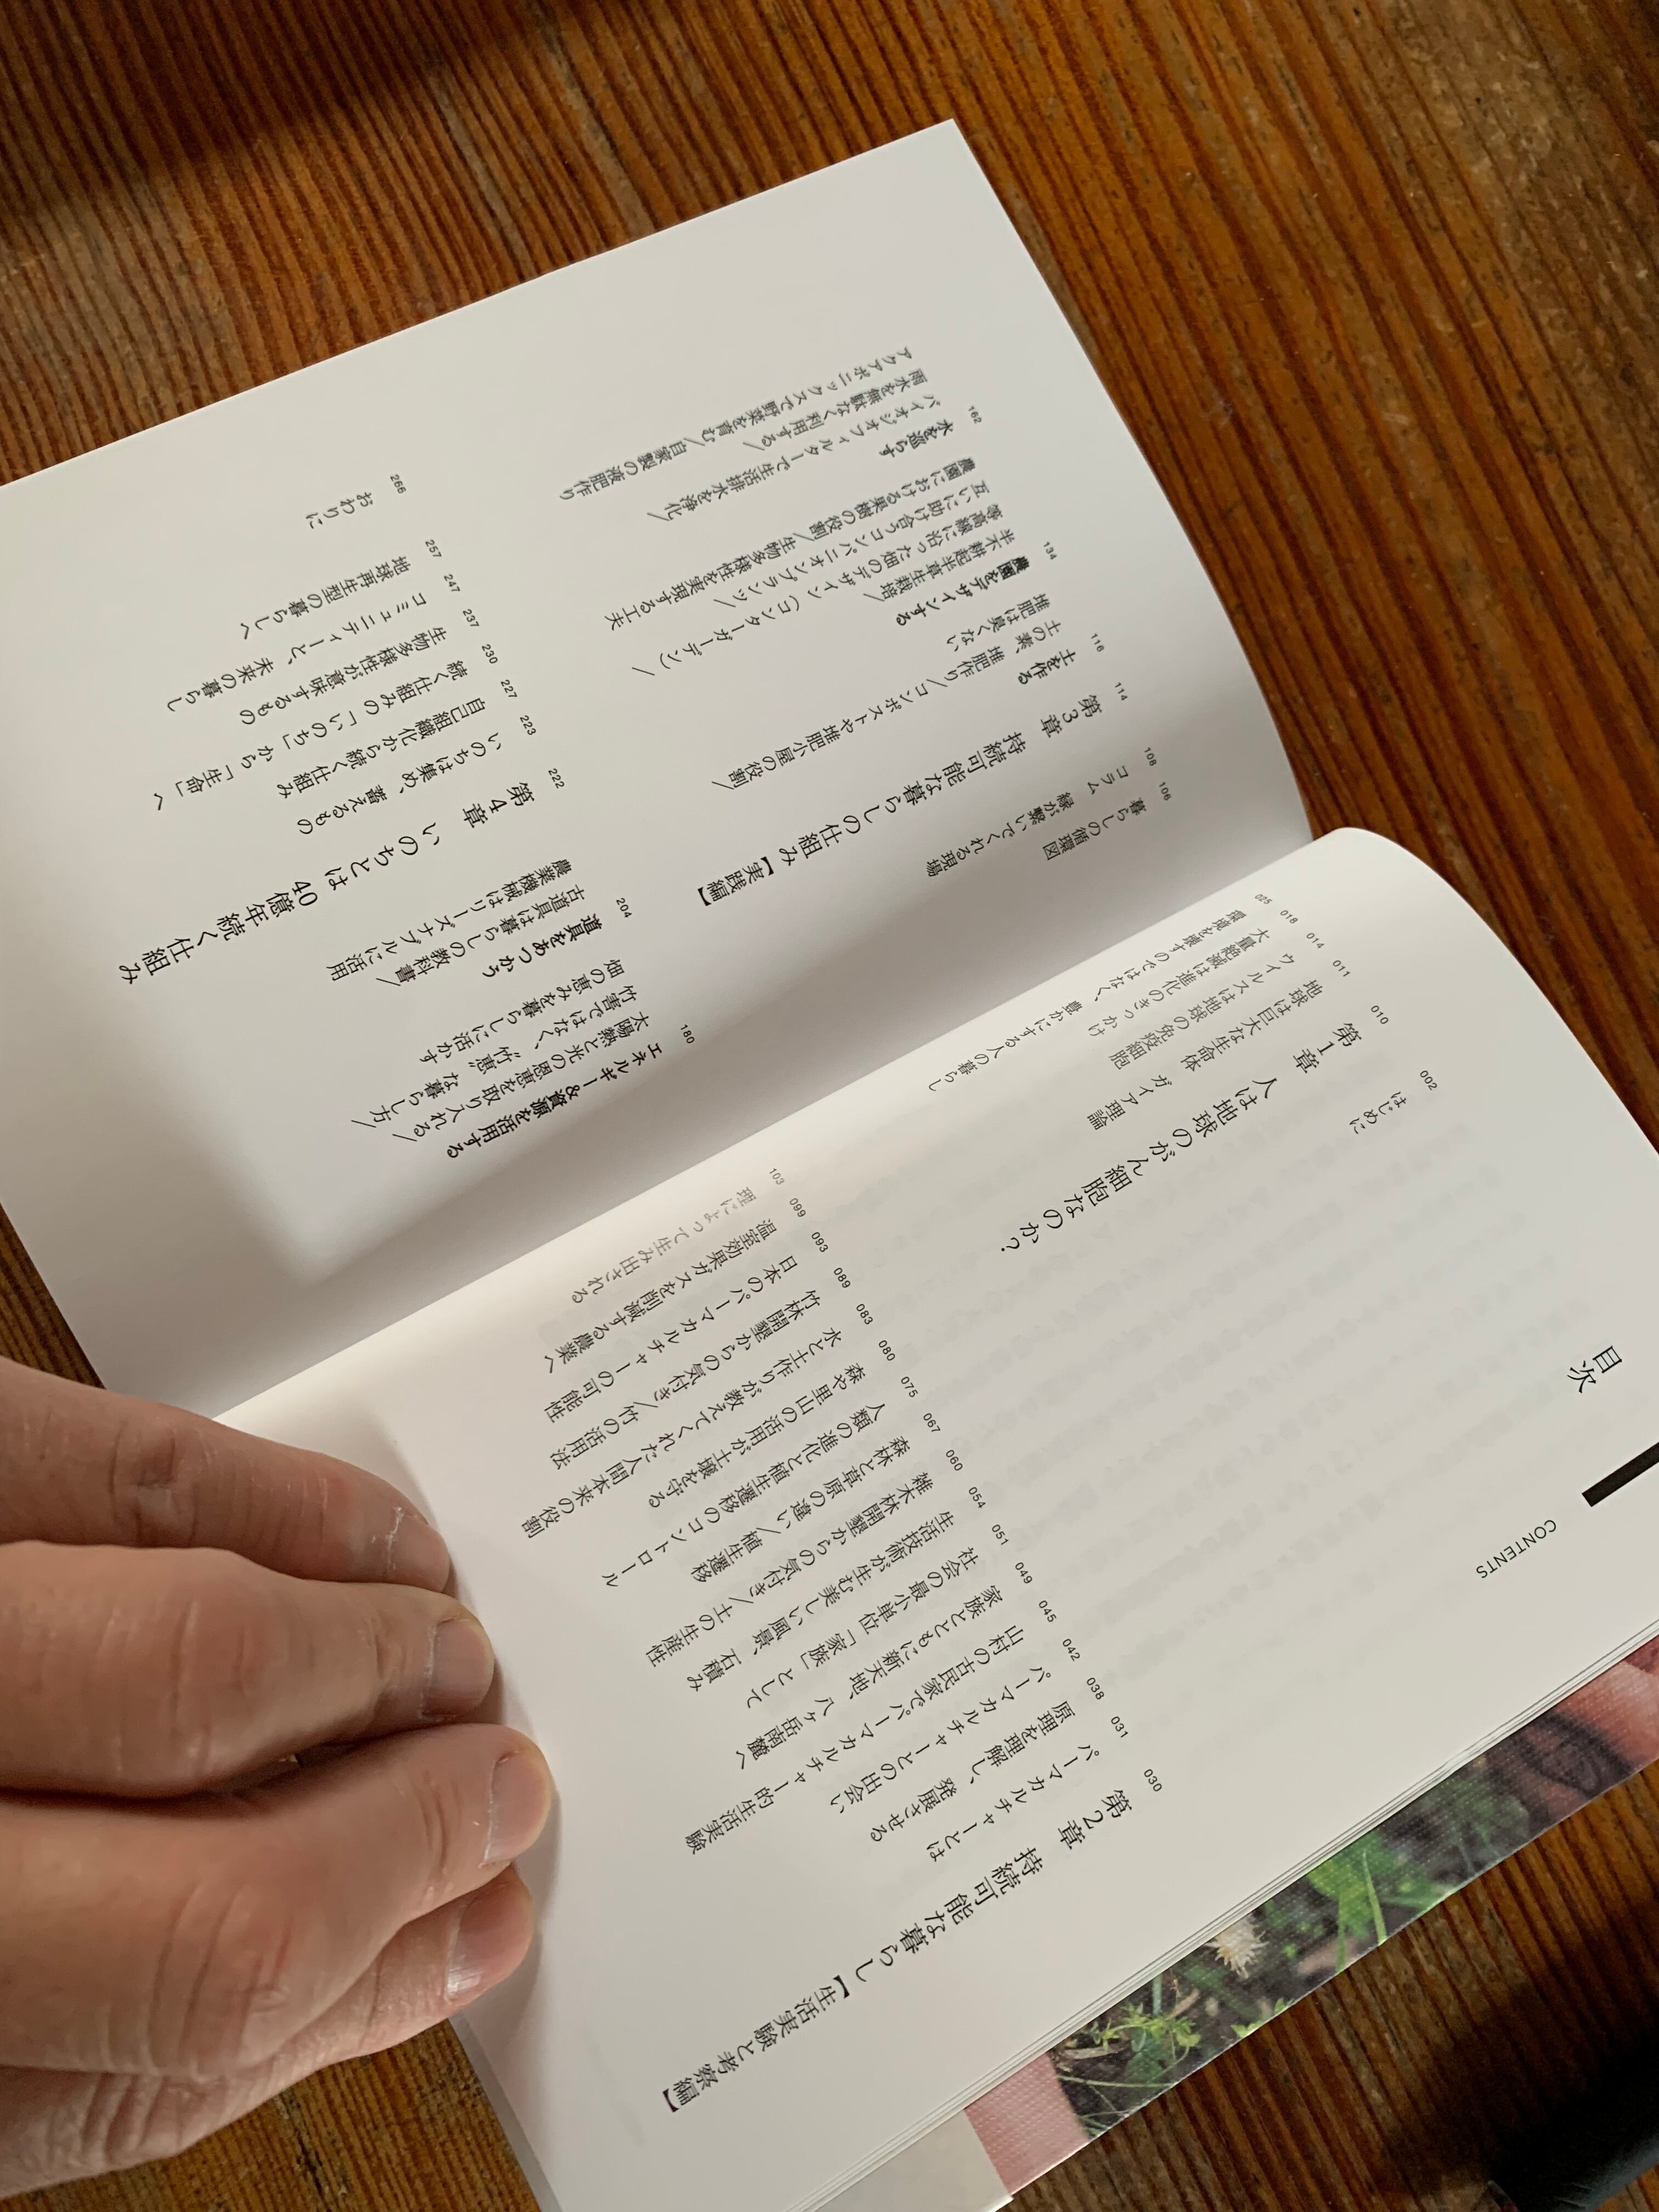 目次
CONTENTS
002
はじめに
010
第1章 人は地球のがん細胞なのか?
011
地球は巨大な生命体 ガイア理論
014
ウイルスは地球の免疫細胞
018
大量絶滅は進化のきっかけ
025
環境を壊すのではなく、豊かにする人の暮らし
030
第2章 持続可能な暮らし【生活実験と考察編】
031
パーマカルチャーとは
038
原理を理解し、発展させる
042
パーマカルチャーとの出会い
045
山村の古民家でパーマカルチャー的生活実験
049
家族とともに新天地、八ヶ岳南麓へ
051
社会の最小単位「家族」として
054
生活技術が生む美しい風景、石積み
060
雑木林開墾からの気付き/土の生産性
067
森林と草原の違い/植生遷移
075
人類の進化と植生遷移のコントロール
080
森や里山の活用が土壌を守る
083
水と土作りが教えてくれた人間本来の役割
089
竹林開墾からの気付き/竹の活用法
093
日本のパーマカルチャーの可能性
099
温室効果ガスを削減する農業へ
103
理によって生み出される
106
暮らしの循環図
108
コラム 縁が繋いでくれる現場
114
第3章 持続可能な暮らしの仕組み【実践編】
116
土を作る
土の素、堆肥作り/コンポストや堆肥小屋の役割/
堆肥は臭くない
134
農園をデザインする
半不耕起半草生栽培/
等高線に沿った畑のデザイン(コンターガーデン)/
互いに助け合うコンパニオンプランツ/
農園における果樹の役割/生物多様性を実現する工夫
162
水を巡らす
バイオジオフィルターで生活排水を浄化/
雨水を無駄なく利用する/
アクアポニックスで野菜を育む/自家製の液肥作り
180
エネルギー&資源を活用する
太陽熱と光の恩恵を取り入れる/
竹害ではなく、“竹恵”な暮らし方/
畑の恵みを暮らしに活かす
204
道具をあつかう
古道具は暮らしの教科書/
農業機械はリーズナブルに活用
222
第4章 いのちとは 40億年続く仕組み
223
いのちは集め、蓄えるもの
227
自己組織化から続く仕組み
230
続く仕組みの「いのち」から「生命」へ
237
生物多様性が意味するもの
247
コミュニティーと、未来の暮らし
257
地球再生型の暮らしへ
266
おわりに